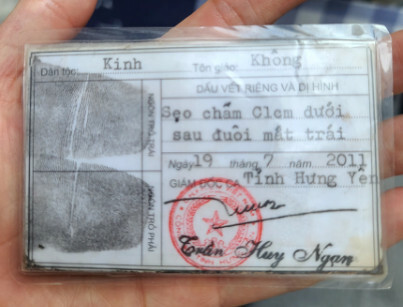 Dân tộc: Kinh Tôn giáo: Không
DẤU VẾT RIÊNG VÀ DỊ HÌNH
Sẹo chấm C1cm dưới
sau đuôi mắt trái
Ngày 19 tháng 7 năm 2011
GIÁM ĐỐC CA Tỉnh Hưng Yên
Trần Huy Ngạn
NGÓN TRỎ TRÁI
NGÓN TRỎ PHẢI